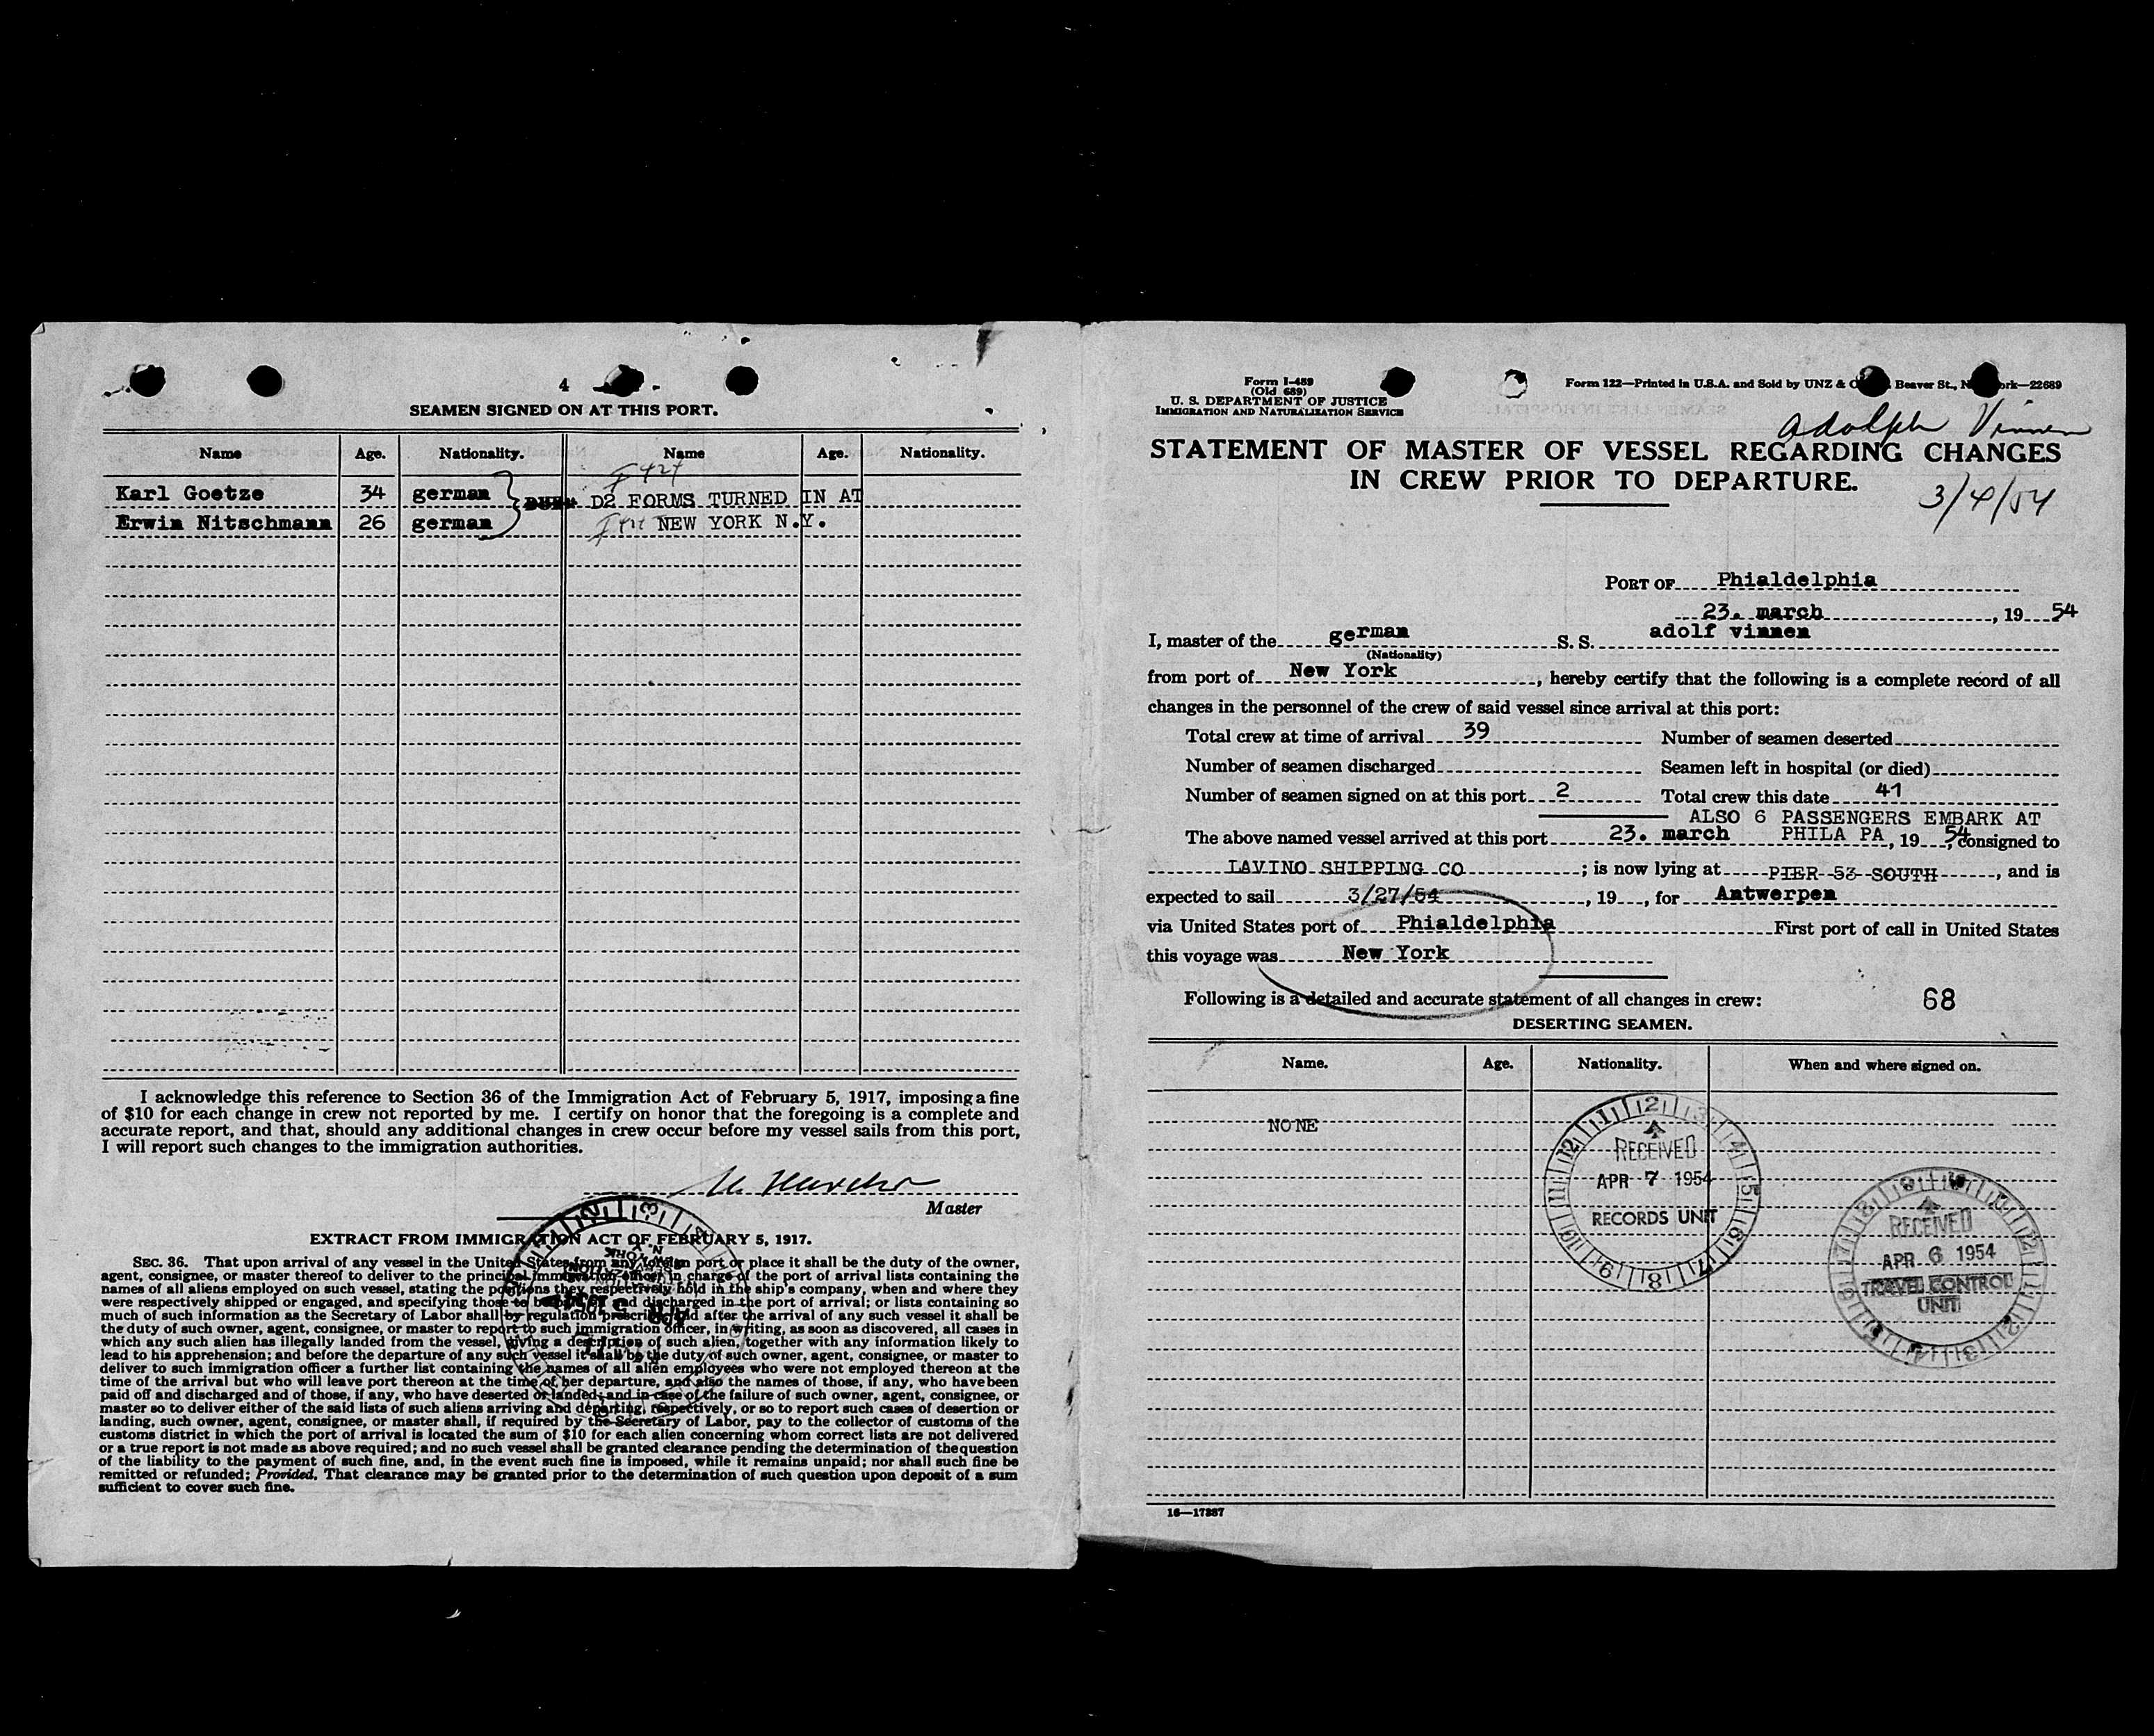 4
SEAMEN SIGNED ON AT THIS PORT.
Name Age. Nationality. Name Age. Nationality.
Karl Goetze 34 german D2 FORMS TURNED IN AT
Erwin Nitschmann 26 german NEW YORK N.Y.
I acknowledge this reference to Section 36 of the Immigration Act of February 5, 1917, imposing a fine
of $10 for each change in crew not reported by me. I certify on honor that the foregoing is a complete and
accurate report, and that, should any additional changes in crew occur before my vessel sails from this port,
I will report such changes to the immigration authorities.
Master
EXTRACT FROM IMMIGRATION ACT OF FEBRUARY 5, 1917.
SEC. 36. That upon arrival of any vessel in the United States from any foreign port or place it shall be the duty of the owner,
agent, consignee, or master thereof to deliver to the principal immigration officer in charge of the port of arrival lists containing the
names of all aliens employed on such vessel, stating the positions they respectively hold in the ship's company, when and where they
were respectively shipped or engaged, and specifying those to be paid off and discharged in the port of arrival; or lists containing so
much of such information as the Secretary of Labor shall by regulation prescribe; and after the arrival of any such vessel it shall be
the duty of such owner, agent, consignee, or master to report to such immigration officer, in writing, as soon as discovered, all cases in
which any such alien has illegally landed from the vessel, giving a description of such alien, together with any information likely to
lead to his apprehension; and before the departure of any such vessel it shall be the duty of such owner, agent, consignee, or master to
deliver to such immigration officer a further list containing the names of all alien employees who were not employed thereon at the
time of the arrival but who will leave port thereon at the time of her departure, and also the names of those, if any, who have been
paid off and discharged and of those, if any, who have deserted or landed; and in case of the failure of such owner, agent, consignee, or
master so to deliver either of the said lists of such aliens arriving and departing, respectively, or so to report such cases of desertion or
landing, such owner, agent, consignee, or master shall, if required by the Secretary of Labor, pay to the collector of customs of the
customs district in which the port of arrival is located the sum of $10 for each alien concerning whom correct lists are not delivered
or a true report is not made as above required; and no such vessel shall be granted clearance pending the determination of the question
of the liability to the payment of such fine, and, in the event such fine is imposed, while it remains unpaid; nor shall such fine be
remitted or refunded; Provided, That clearance may be granted prior to the determination of such question upon deposit of a sum
sufficient to cover such fine.
APR 5 1954
Form I-489
(Old 689)
U. S. DEPARTMENT OF JUSTICE
IMMIGRATION AND NATURALIZATION SERVICE
Form 122—Printed in U.S.A. and Sold by UNZ & Beaver St., 22689
Adolph Vinnen
STATEMENT OF MASTER OF VESSEL REGARDING CHANGES
IN CREW PRIOR TO DEPARTURE.
3/4/54
PORT OF Phialdelphia
23. march, 19 54
I, master of the german S. S. adolf vinnen
(Nationality)
from port of New York, hereby certify that the following is a complete record of all
changes in the personnel of the crew of said vessel since arrival at this port:
Total crew at time of arrival 39 Number of seamen deserted
Number of seamen discharged Seamen left in hospital (or died)
Number of seamen signed on at this port 2 Total crew this date 41
ALSO 6 PASSENGERS EMBARK AT
PHILA PA
The above named vessel arrived at this port 23. march, 19 54, consigned to
LAVINO SHIPPING CO; is now lying at PIER 53 SOUTH, and is
expected to sail 3/27/54, 19, for Antwerpen
via United States port of Phialdelphia First port of call in United States
this voyage was New York
Following is a detailed and accurate statement of all changes in crew:
68
DESERTING SEAMEN.
Name. Age. Nationality. When and where signed on.
NONE
RECEIVED
APR 7 1954
RECORDS UNIT
RECEIVED
APR 6 1954
TRAVEL CONTROL
UNIT
16—17287